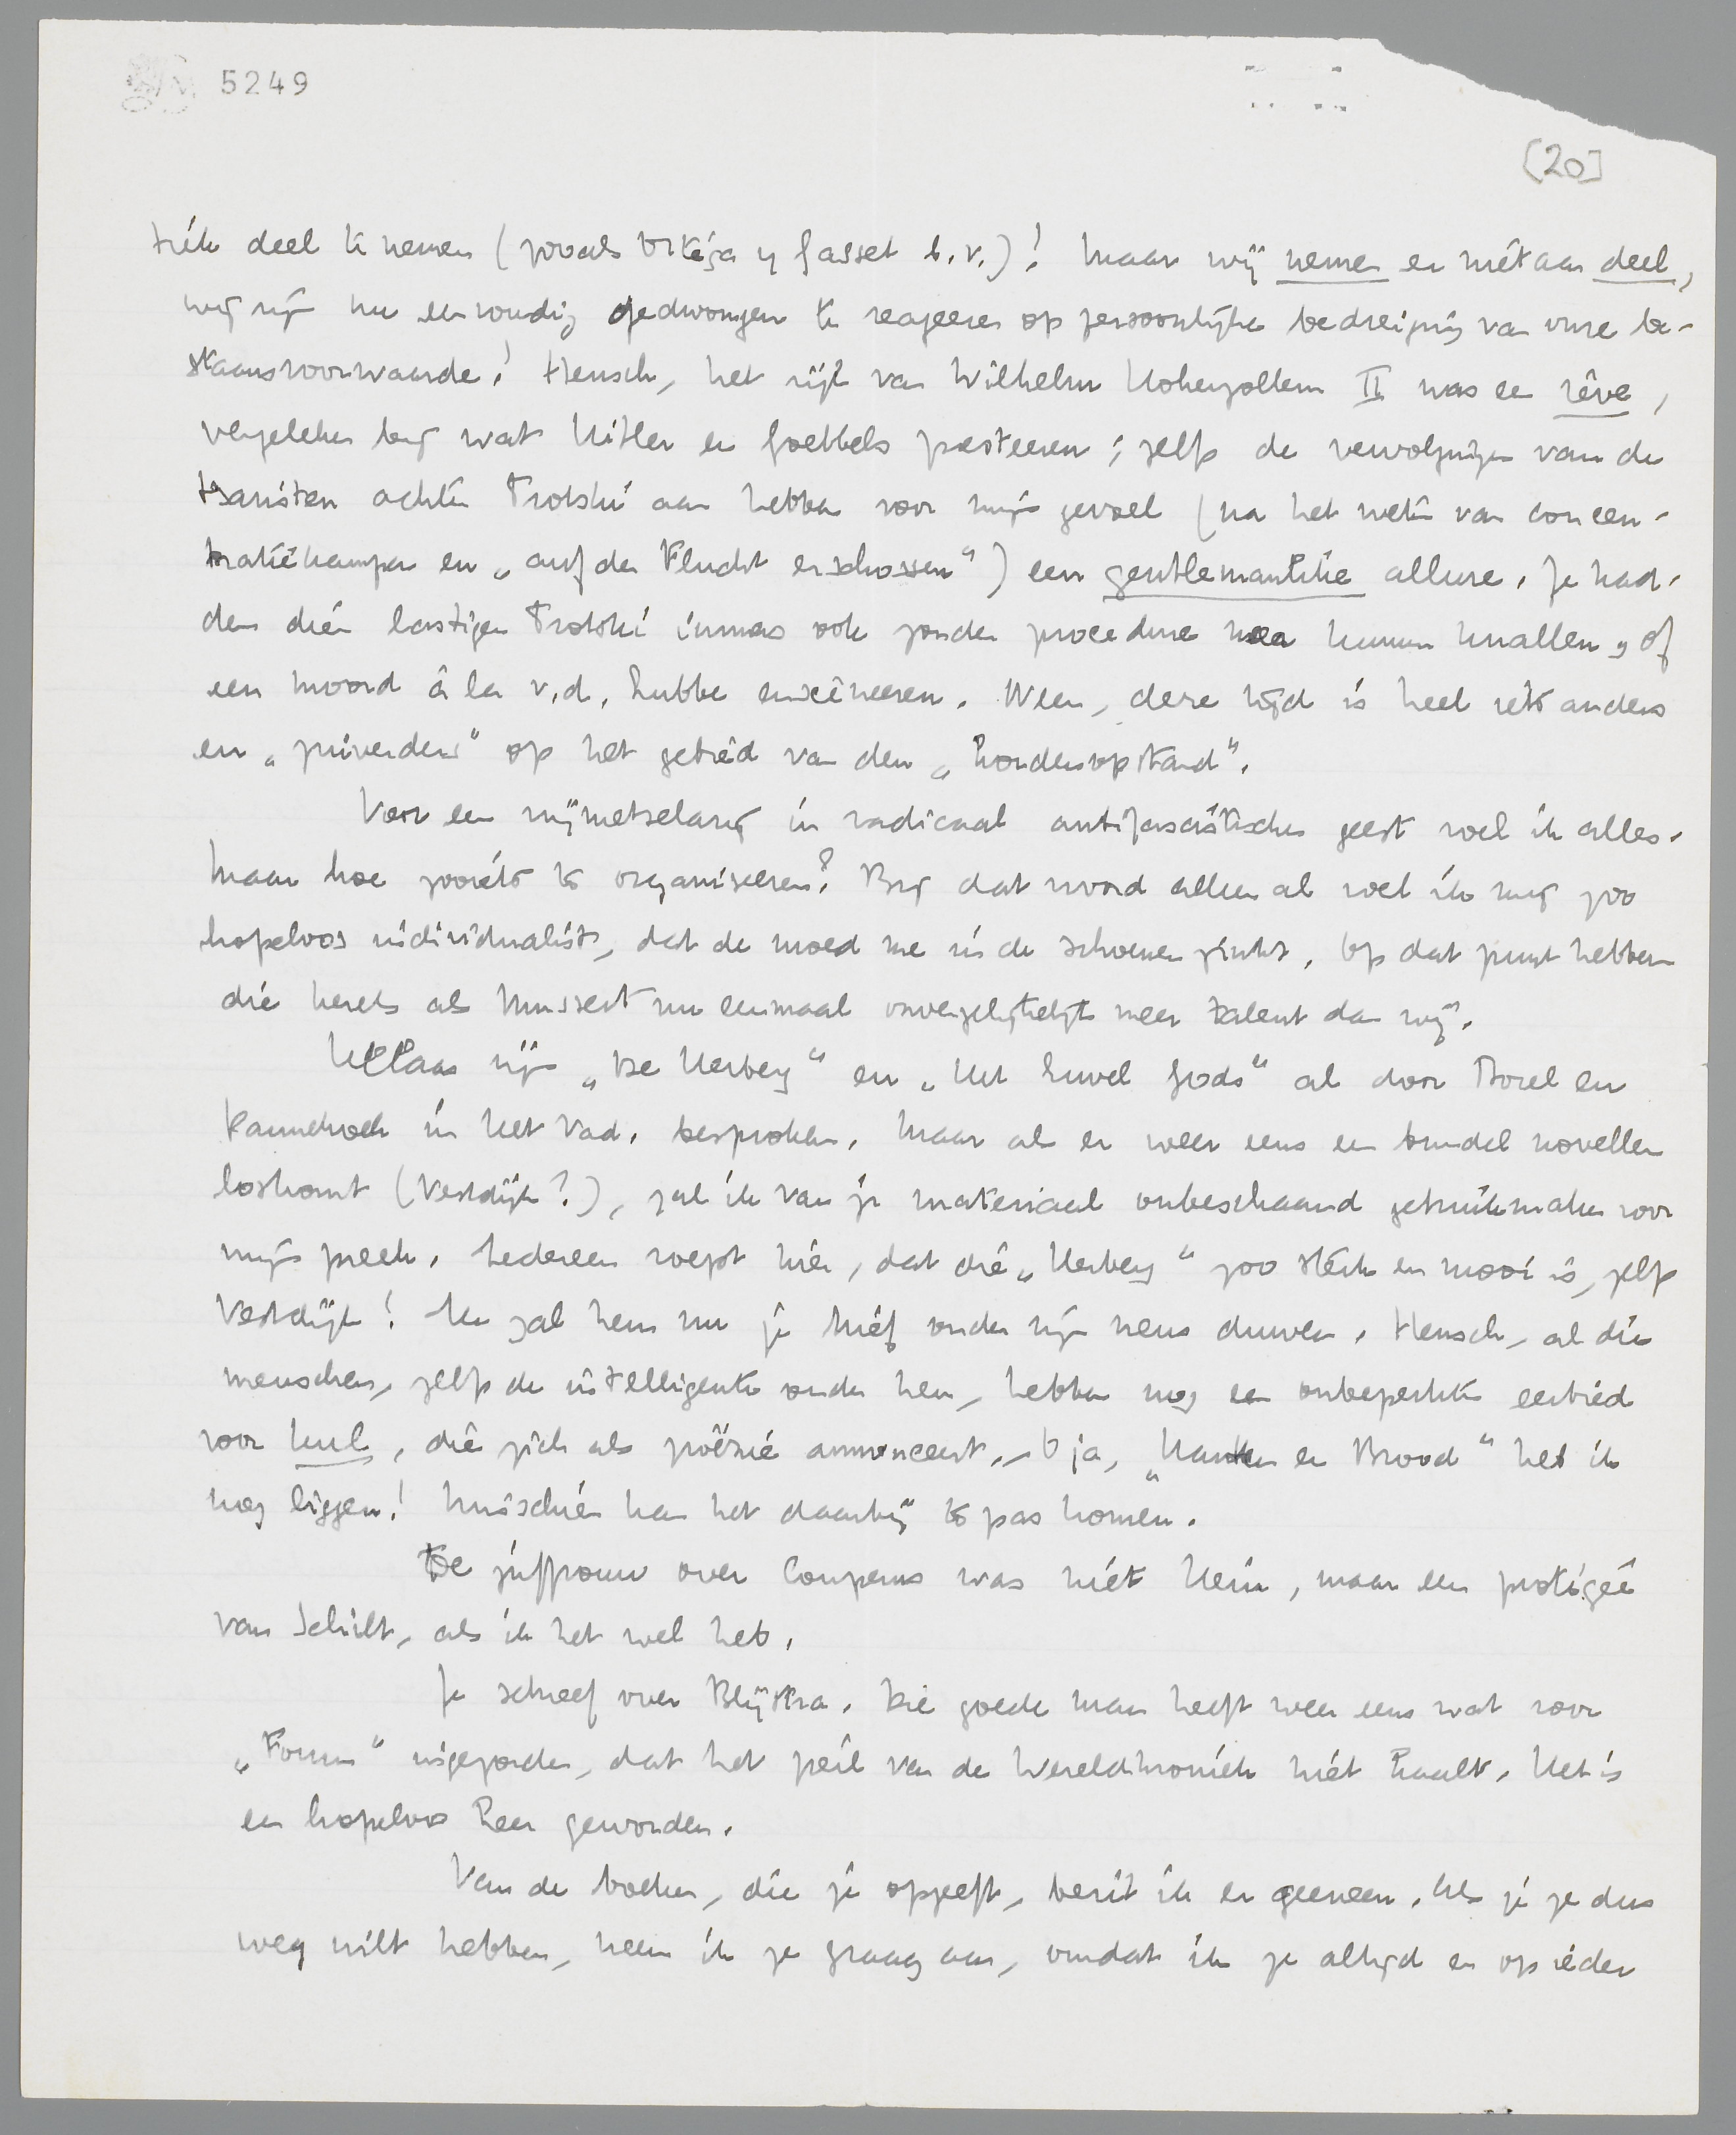 5249
[20]
tiek deel te nemen (zooals Ortéga y Gasset b.v.)! Maar wij nemen er niet aan deel,
wij zijn nu eenvoudig gedwongen te reageeren op persoonlijke bedreiging van onze be-
staansvoorwaarde! Mensch, het rijk van Wilhelm Hohenzollern II was een rêve,
vergeleken bij wat Hitler en Goebbels presteeren; zelfs de vervolgingen van de
tsaristen achter Trotski aan hebben voor mijn gevoel (na het weten van concen-
tratiekampen en „auf der Flucht erschossen") een gentlemanlike allure. Ze had-
den dien lastigen Trotski immers ook zonder procedure neer kunnen knallen, of
een moord à la v.d. Lubbe ensceneeren. Neen, deze tijd is heel iets anders
en „zuiverders" op het gebied van den „hordenopstand".
Voor een vrijmetselarij in radicaal antifascistischen geest voel ik alles.
Maar hoe zooiets te organiseeren? Bij dat woord alleen al voel ik mij zoo
hopeloos individualist, dat de moed me in de schoenen zinkt. Op dat punt hebben
die kerels als Mussert nu eenmaal onvergelijkelijk meer talent dan wij.
Helaas zijn „De Herberg" en „Het Euvel Gods" al door Borel en
Panneknoek in Het Vad. besproken. Maar als er weer eens een bundel novellen
loskomt (Vestdijk?), zal ik van je materiaal onbeschaamd gebruikmaken voor
mijn preek. Iedereen roept hier, dat die „Herberg" zoo sterk en mooi is, zelfs
Vestdijk! Ik zal hem nu je brief onder zijn neus duwen. Mensch, al die
menschen, zelfs de intelligente onder hen, hebben nog een onbeperkte eerbied
voor kul, die zich als poëzie annonceert. - O ja, „Hanken en Brood" heb ik
nog liggen! Misschien kan het daarbij te pas komen.
De juffrouw over Couperus was niet Hein, maar een protégée
van Schilt, als ik het wel heb.
Je schreef over Blijstra. Die goede man heeft weer eens wat voor
„Forum" ingezonden, dat het peil van de Wereldkroniek niet haalt. Het is
een hopeloos heer geworden.
Van de boeken, die je opgeeft, bezit ik er geeneen. Als je ze dus
weg wilt hebben, neem ik ze graag aan, omdat ik ze altijd en op ieder